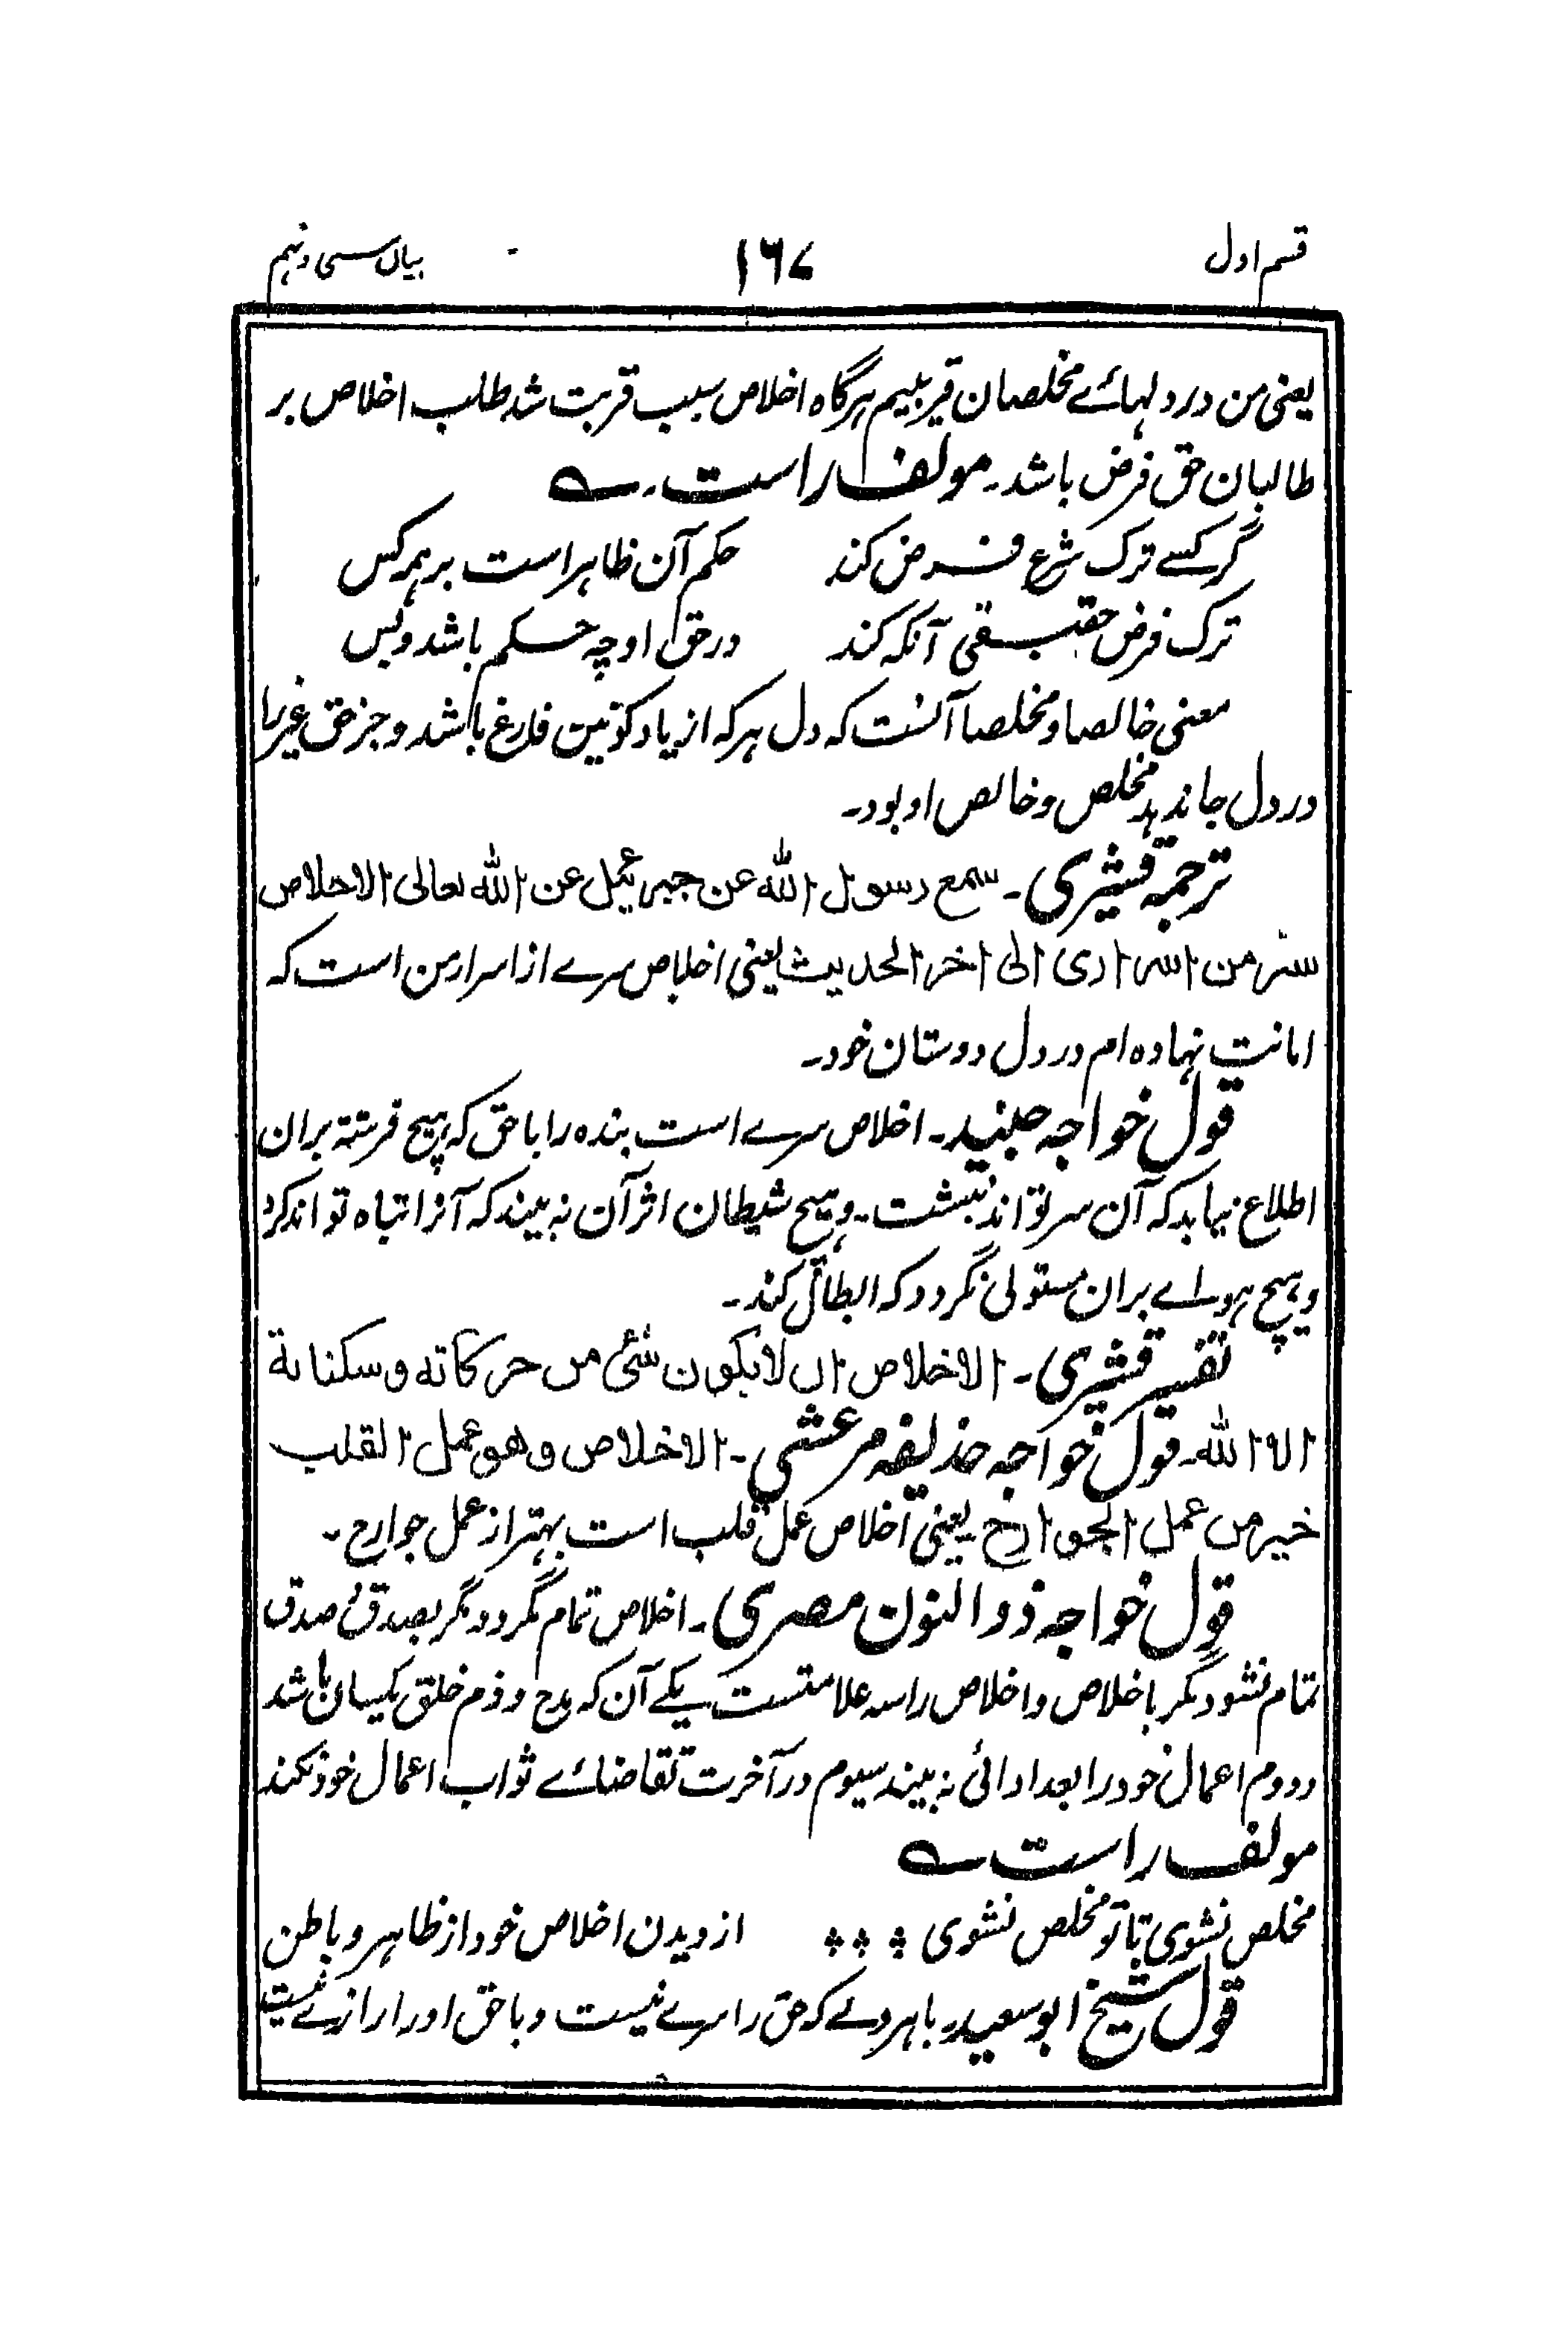 قسم اول
۱۶۷
بیان سی و نہم
یعنی من در دلہائے مخلصان قریبیم ہرگاہ اخلاص سبب قربت شد طلب اخلاص بر
طالبان حق فرض باشد۔ مولف راست۔ ؎
گر کسے ترک شرع فرض کند حکم آن ظاہر است بر ہمہ کس
ترک فرض حقیقی آنکہ کند در حق او چہ حکم باشد و بس
معنی خالصا و مخلصا آنست کہ دل ہر کہ از یاد کونین فارغ باشد و جز حق غیر را
در دل جا ندہد مخلص و خالص او بود۔
ترجمہ قشیری۔ سمع رسول الله عن جبرئیل عن الله تعالی الاخلاص
سر من اسراری الی اخر الحدیث یعنی اخلاص سرے از اسرار من است کہ
امانت نہادہ ام در دل دوستان خود۔
قول خواجہ جنید۔ اخلاص سرے است بندہ را با حق کہ ہیچ فرشتہ بران
اطلاع نیابد کہ آن سر تواند نبشت۔ و ہیچ شیطان اثر آن نہ بیند کہ آنرا تباہ تواند کرد
و ہیچ ہوائے بران مستولی نگردد کہ ابطال کند۔
تفسیر قشیری۔ الاخلاص ان لا یکون شئ من حرکاته و سکناته
الا الله۔ قول خواجہ حذیفہ مرعشی۔ الاخلاص و هو عمل القلب
خیر من عمل الجوارح یعنی اخلاص عمل قلب است بہتر از عمل جوارح۔
قول خواجہ ذوالنون مصری۔ اخلاص تمام نگردد مگر بصدق و صدق
تمام نشود مگر باخلاص و اخلاص را سہ علامتست یکے آن کہ مدح و ذم خلق یکسان باشد
دوم اعمال خود را بعد ادائی نہ بیند سیوم در آخرت تقاضائے ثواب اعمال خود نکند
مولف راست ؎
مخلص نشوی تا تو مخلص نشوی از دیدن اخلاص خود از ظاہر و باطن
قول شیخ ابو سعید۔ باہر دلے کہ حق را سرے نیست و با حق او را رازے نیست